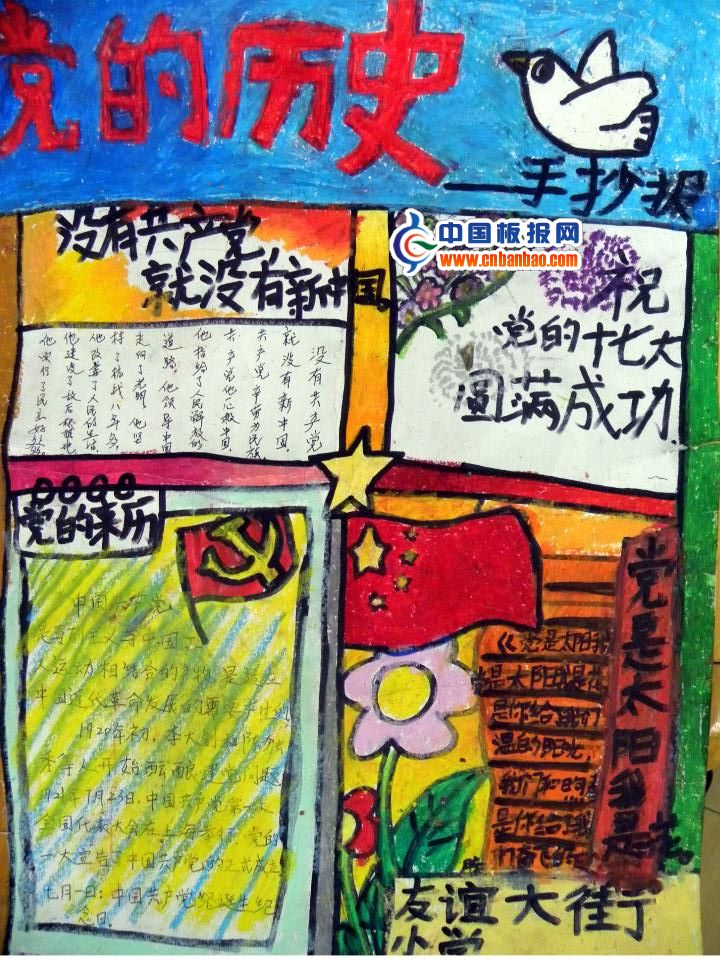 党的历史
——手抄报
中国板报网
www.cnbanbao.com
没有共产党,
就没有新中国。
没有共产党
就没有新中国。
共产党 辛劳为民族
共产党他一心救中国
他指给了人民解放的
道路 他领导中国
走向了光明 他坚
持了抗战八年多
他改善了人民的生活
他建设了敌后根据地
他实行了民主好处多。
祝
党的十七大
圆满成功.
党的来历
中国 党
是 主义与中国工
人运动相结合的产物,是
中国近代革命发展的
1920年初,李大
等人开始酝酿建党问题
1921年7月23日,中国共产党第一次
全国代表大会在上海举行,党的
一大宣告了中国共产党的正式成立
七月一日:中国共产党 诞生纪
念日。
党是太阳我是花
《党是太阳我
党是太阳我是花
是你给我们
温的阳光,
我们
是你给我
友谊大街
小学